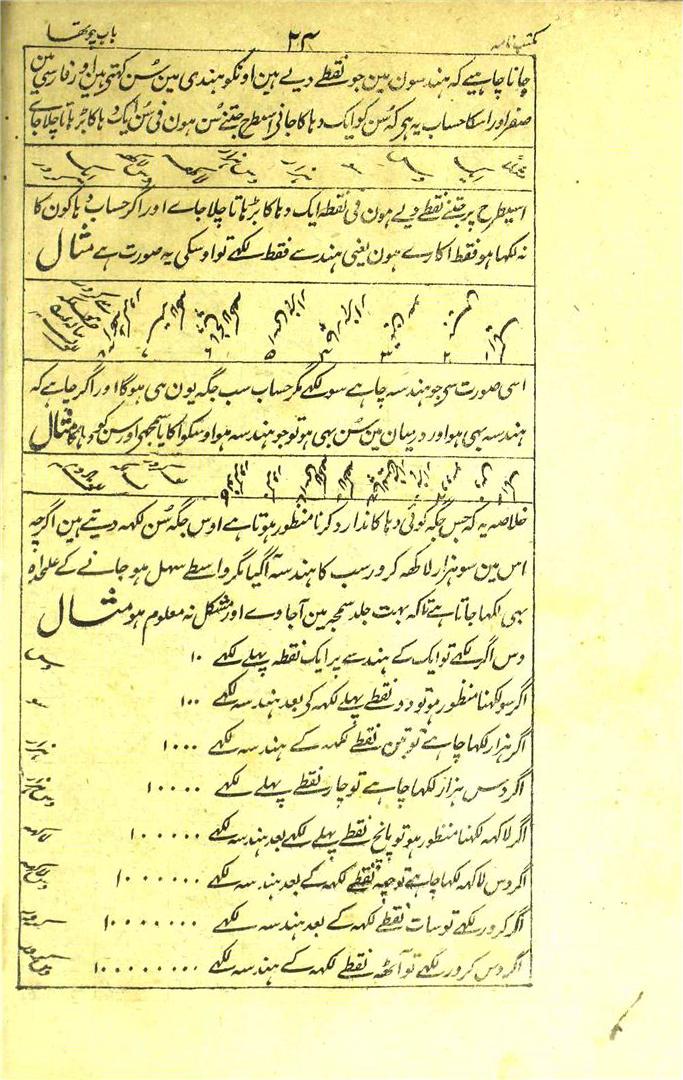 مکتب نامہ ۲۳ باب چوتھا
جانا چاہیے کہ ہندسون مین جو نقطے دیے ہین اونکو ہندی مین سُن کہتی ہین اور فارسی مین
صفر اور اسکا حساب یہ ہی کہ سُن کو ایک دہاکا جانی اسیطرح جتنے سُن ہون فی سُن ایک دہاکا بڑہاتا چلا جاے
ایک دس سو ہزار دس ہزار لاکھہ دس لاکھہ ایک کرور
اسیطرح پر جتنے نقطے دیے ہون فی نقطہ ایک دہاکا بڑہاتا چلا جاے اور اگر حساب دہاکون کا
نہ لکہا ہو فقط اکارے ہون یعنی ہندسے فقط لکہے تو اوسکی یہ صورت ہے مثال
۱ ۲ ۳ ۴ ۵ ۶ ۷ ۸
اسی صورت سی جو ہندسہ چاہے سو لکہے مگر حساب سب جگہ یون ہی ہوگا اور اگر چاہے کہ
ہندسہ بہی ہو اور درمیان مین سُن بہی ہو تو جو ہندسہ ہو اوسکو اکایا سمجھی اور سن کو دہاکا مثال
خلاصہ یہ کہ جس جگہ کوئی دہاکا ندارد کرنا منظور ہوتا ہے اوس جگہ سُن لکہہ دیتے ہین اگرچہ
اس مین سو ہزار لاکھہ کرور سب کا ہندسہ آگیا مگر واسطے سہل ہو جانے کے علیحدہ
بہی لکہا جاتا ہے تاکہ بہت جلد سمجھہ مین آجاوے اور مشکل نہ معلوم ہو مثال
دس اگر لکہے تو ایک کے ہندسے پر ایک نقطہ پہلے لکہے ۱۰ دس
اگر سو لکہنا منظور ہو تو دو نقطے پہلے لکہہ کی بعد ہندسہ لکہے ۱۰۰ سو
اگر ہزار لکہا چاہے تو تین نقطے لکہہ کے ہندسہ لکہے ۱۰۰۰ ہزار
اگر دس ہزار لکہا چاہے تو چار نقطے پہلے لکہے ۱۰۰۰۰ دس ہزار
اگر لاکہہ لکہنا منظور ہو تو پانچ نقطے پہلے لکہے بعد ہندسہ لکہے ۱۰۰۰۰۰ لاکہہ
اگر دس لاکہہ لکہا چاہے تو چہہ نقطے لکہہ کے بعد ہندسہ لکہے ۱۰۰۰۰۰۰ دس لاکہہ
اگر کرور لکہے تو سات نقطے لکہہ کے بعد ہندسہ لکہے ۱۰۰۰۰۰۰۰ کرور
اگر دس کرور لکہے تو آٹہہ نقطے لکہہ کے ہندسہ لکہے ۱۰۰۰۰۰۰۰۰ دس کرور